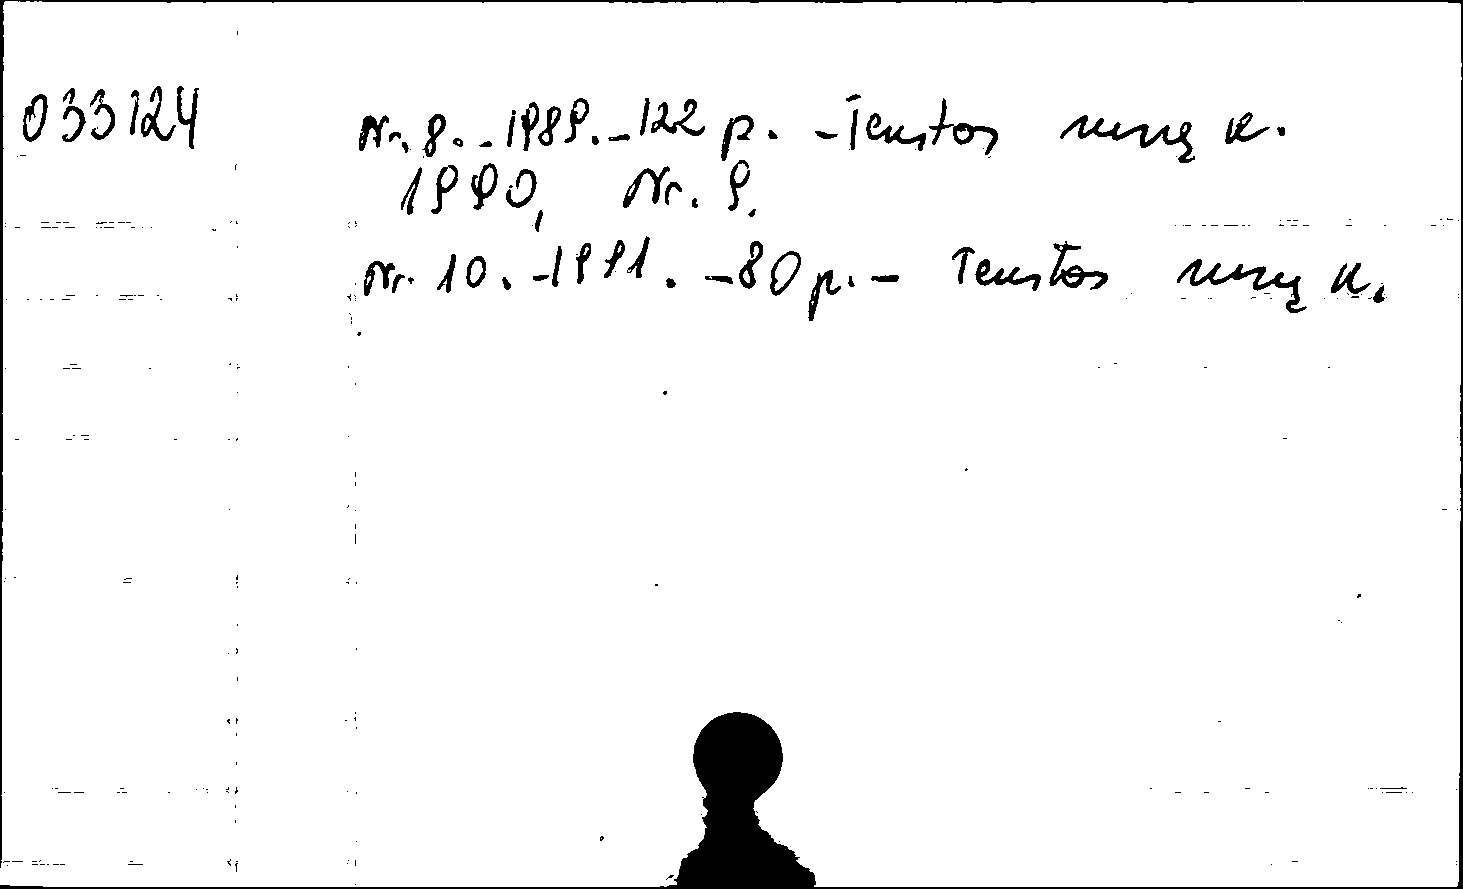 033124 Nr. 8. - 1989. - 122 p. - Tekstas rusų k.
1990, Nr. 9.
Nr. 10. - 1991. - 80 p. - Tekstas rusų k.